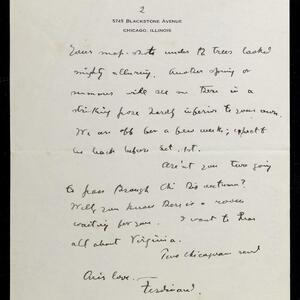 2
5745 BLACKSTONE AVENUE
CHICAGO, ILLINOIS
Your snap-shots under the trees looked
mighty alluring. Another spring or
summer will see me there in a
striking pose hardly inferior to your own.
We are off for a few weeks; expect to
be back before Oct. 1st.
Aren't you two going
to pass through Chi this autumn?
Well, you know there is a room
waiting for you. I want to hear
all about Virginia.
Two Chicagoans send
love.
Ferdinand.